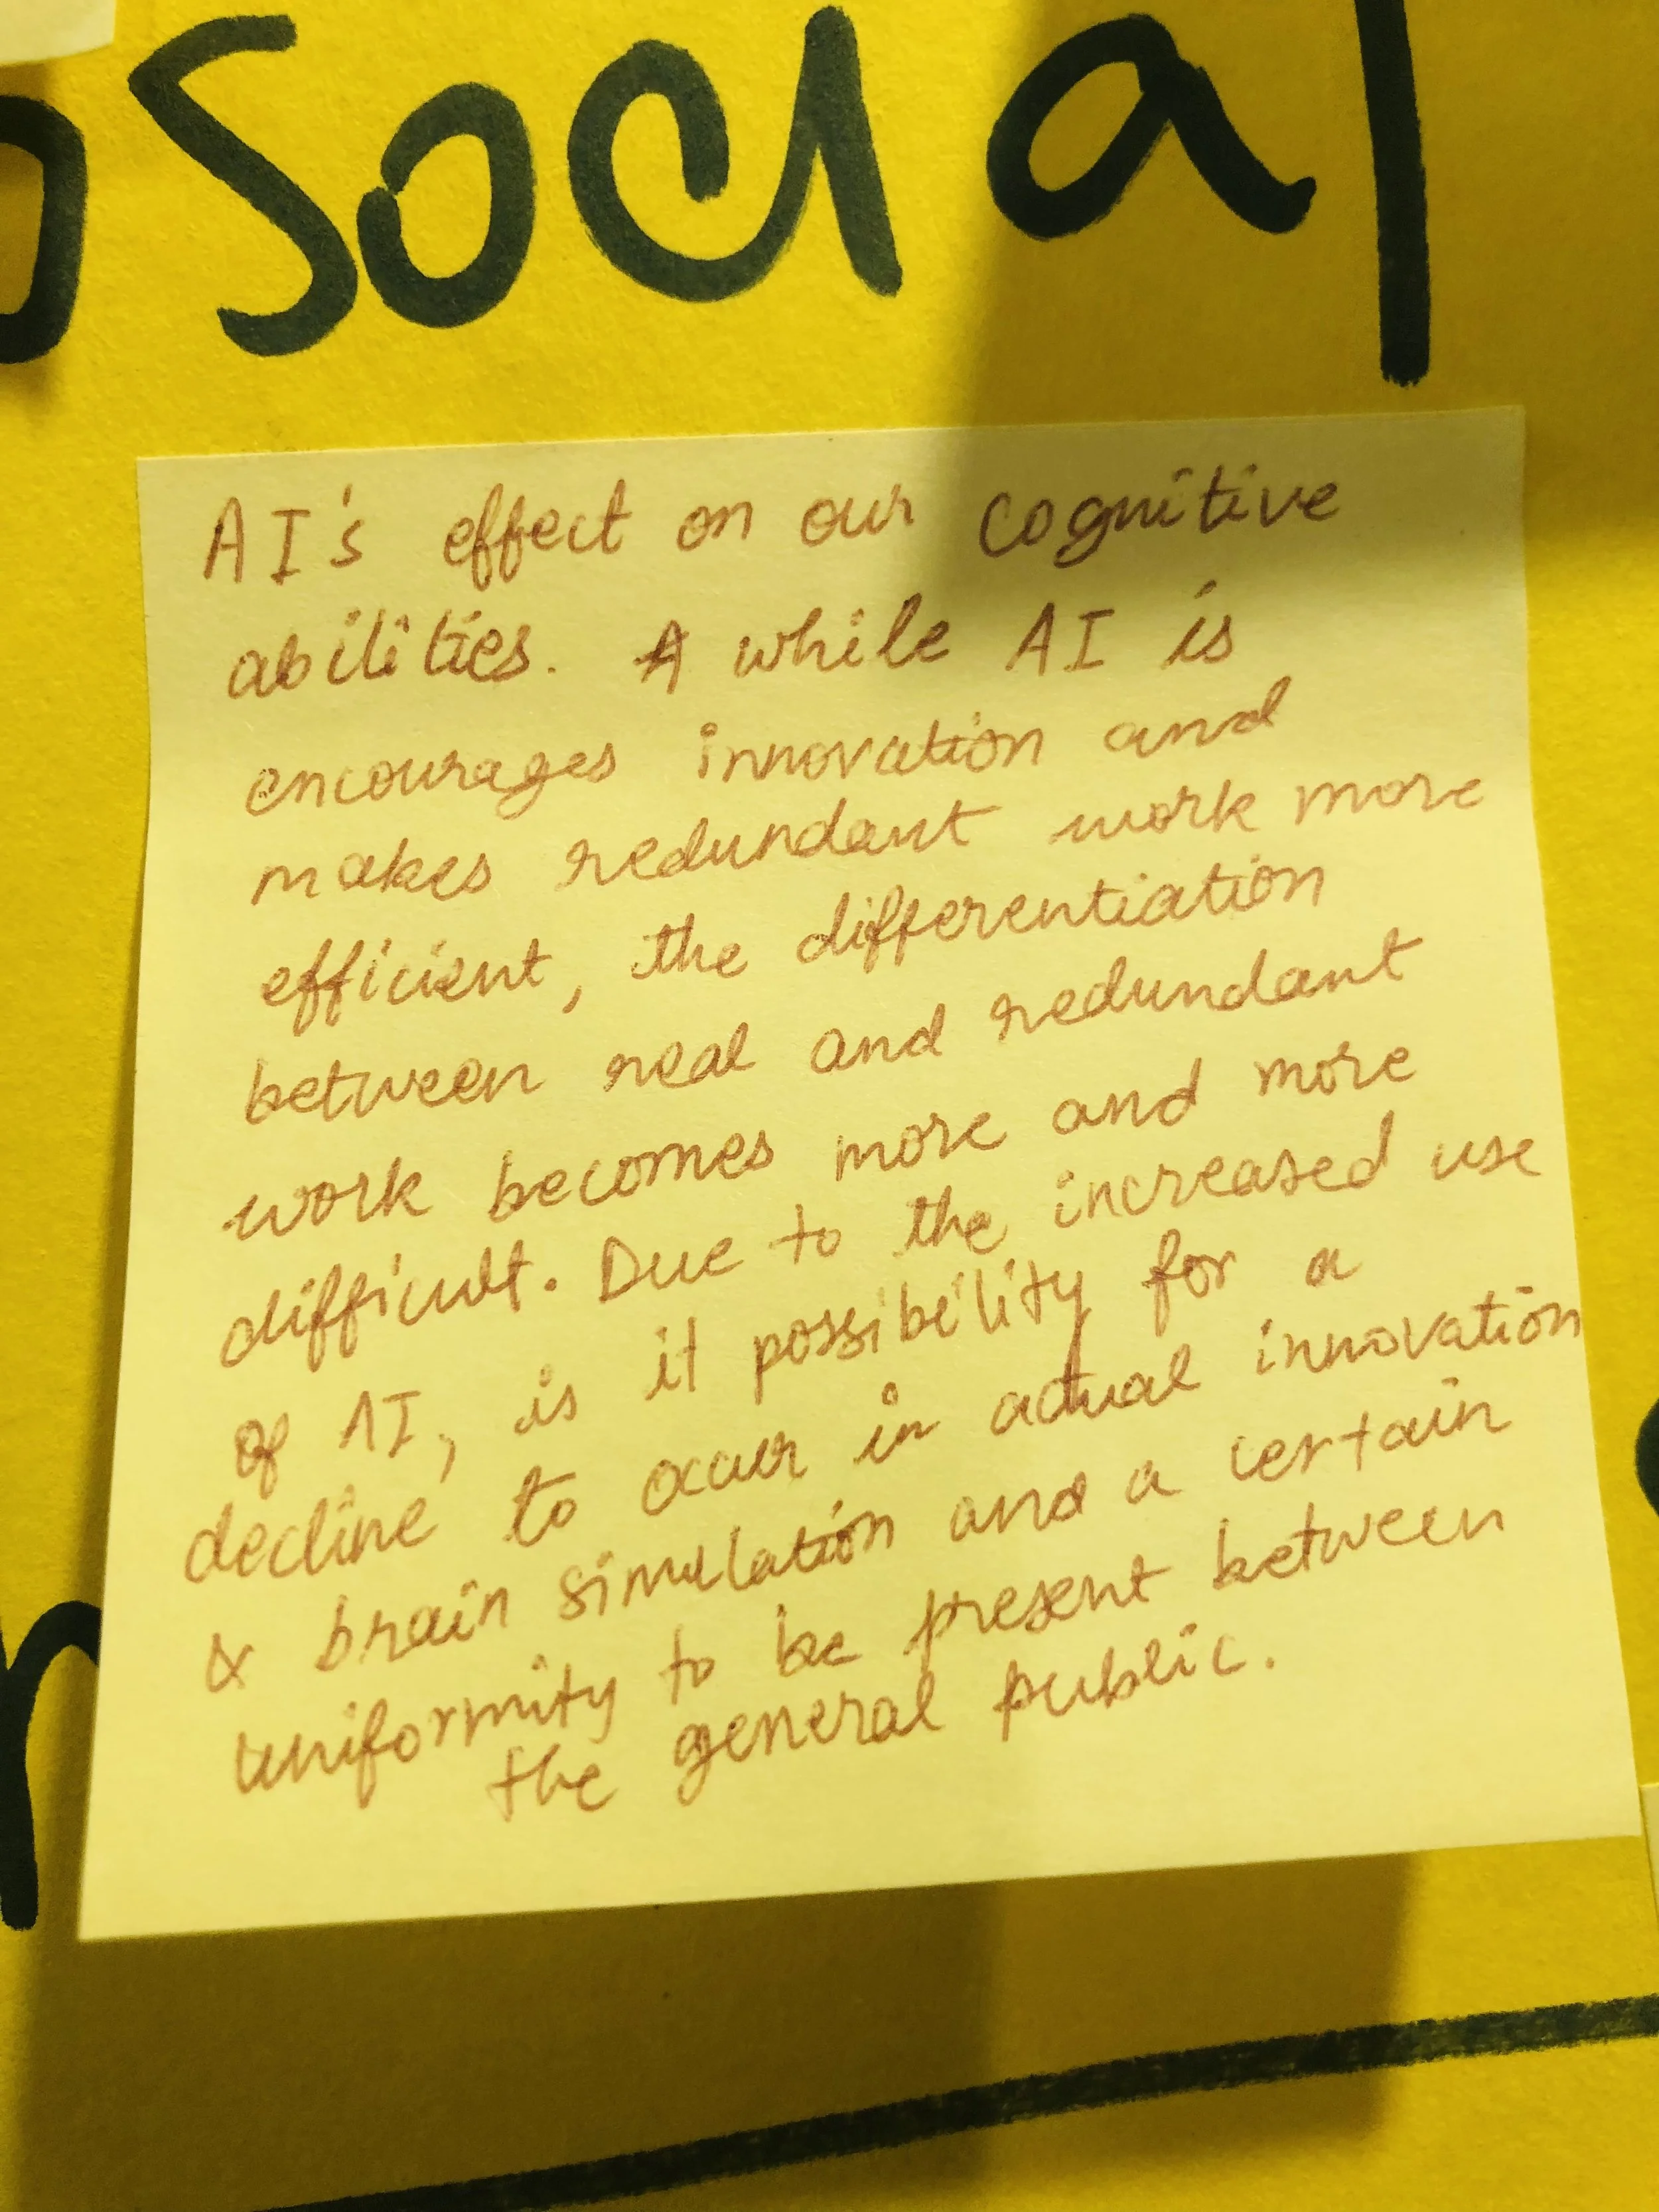 Social
AI's effect on our cognitive
abilities. A while AI is
encourages innovation and
makes redundant work more
efficient, the differentiation
between real and redundant
work becomes more and more
difficult. Due to the increased use
of AI, is it possibility for a
decline to occur in actual innovation
& brain simulation and a certain
uniformity to be present between
the general public.